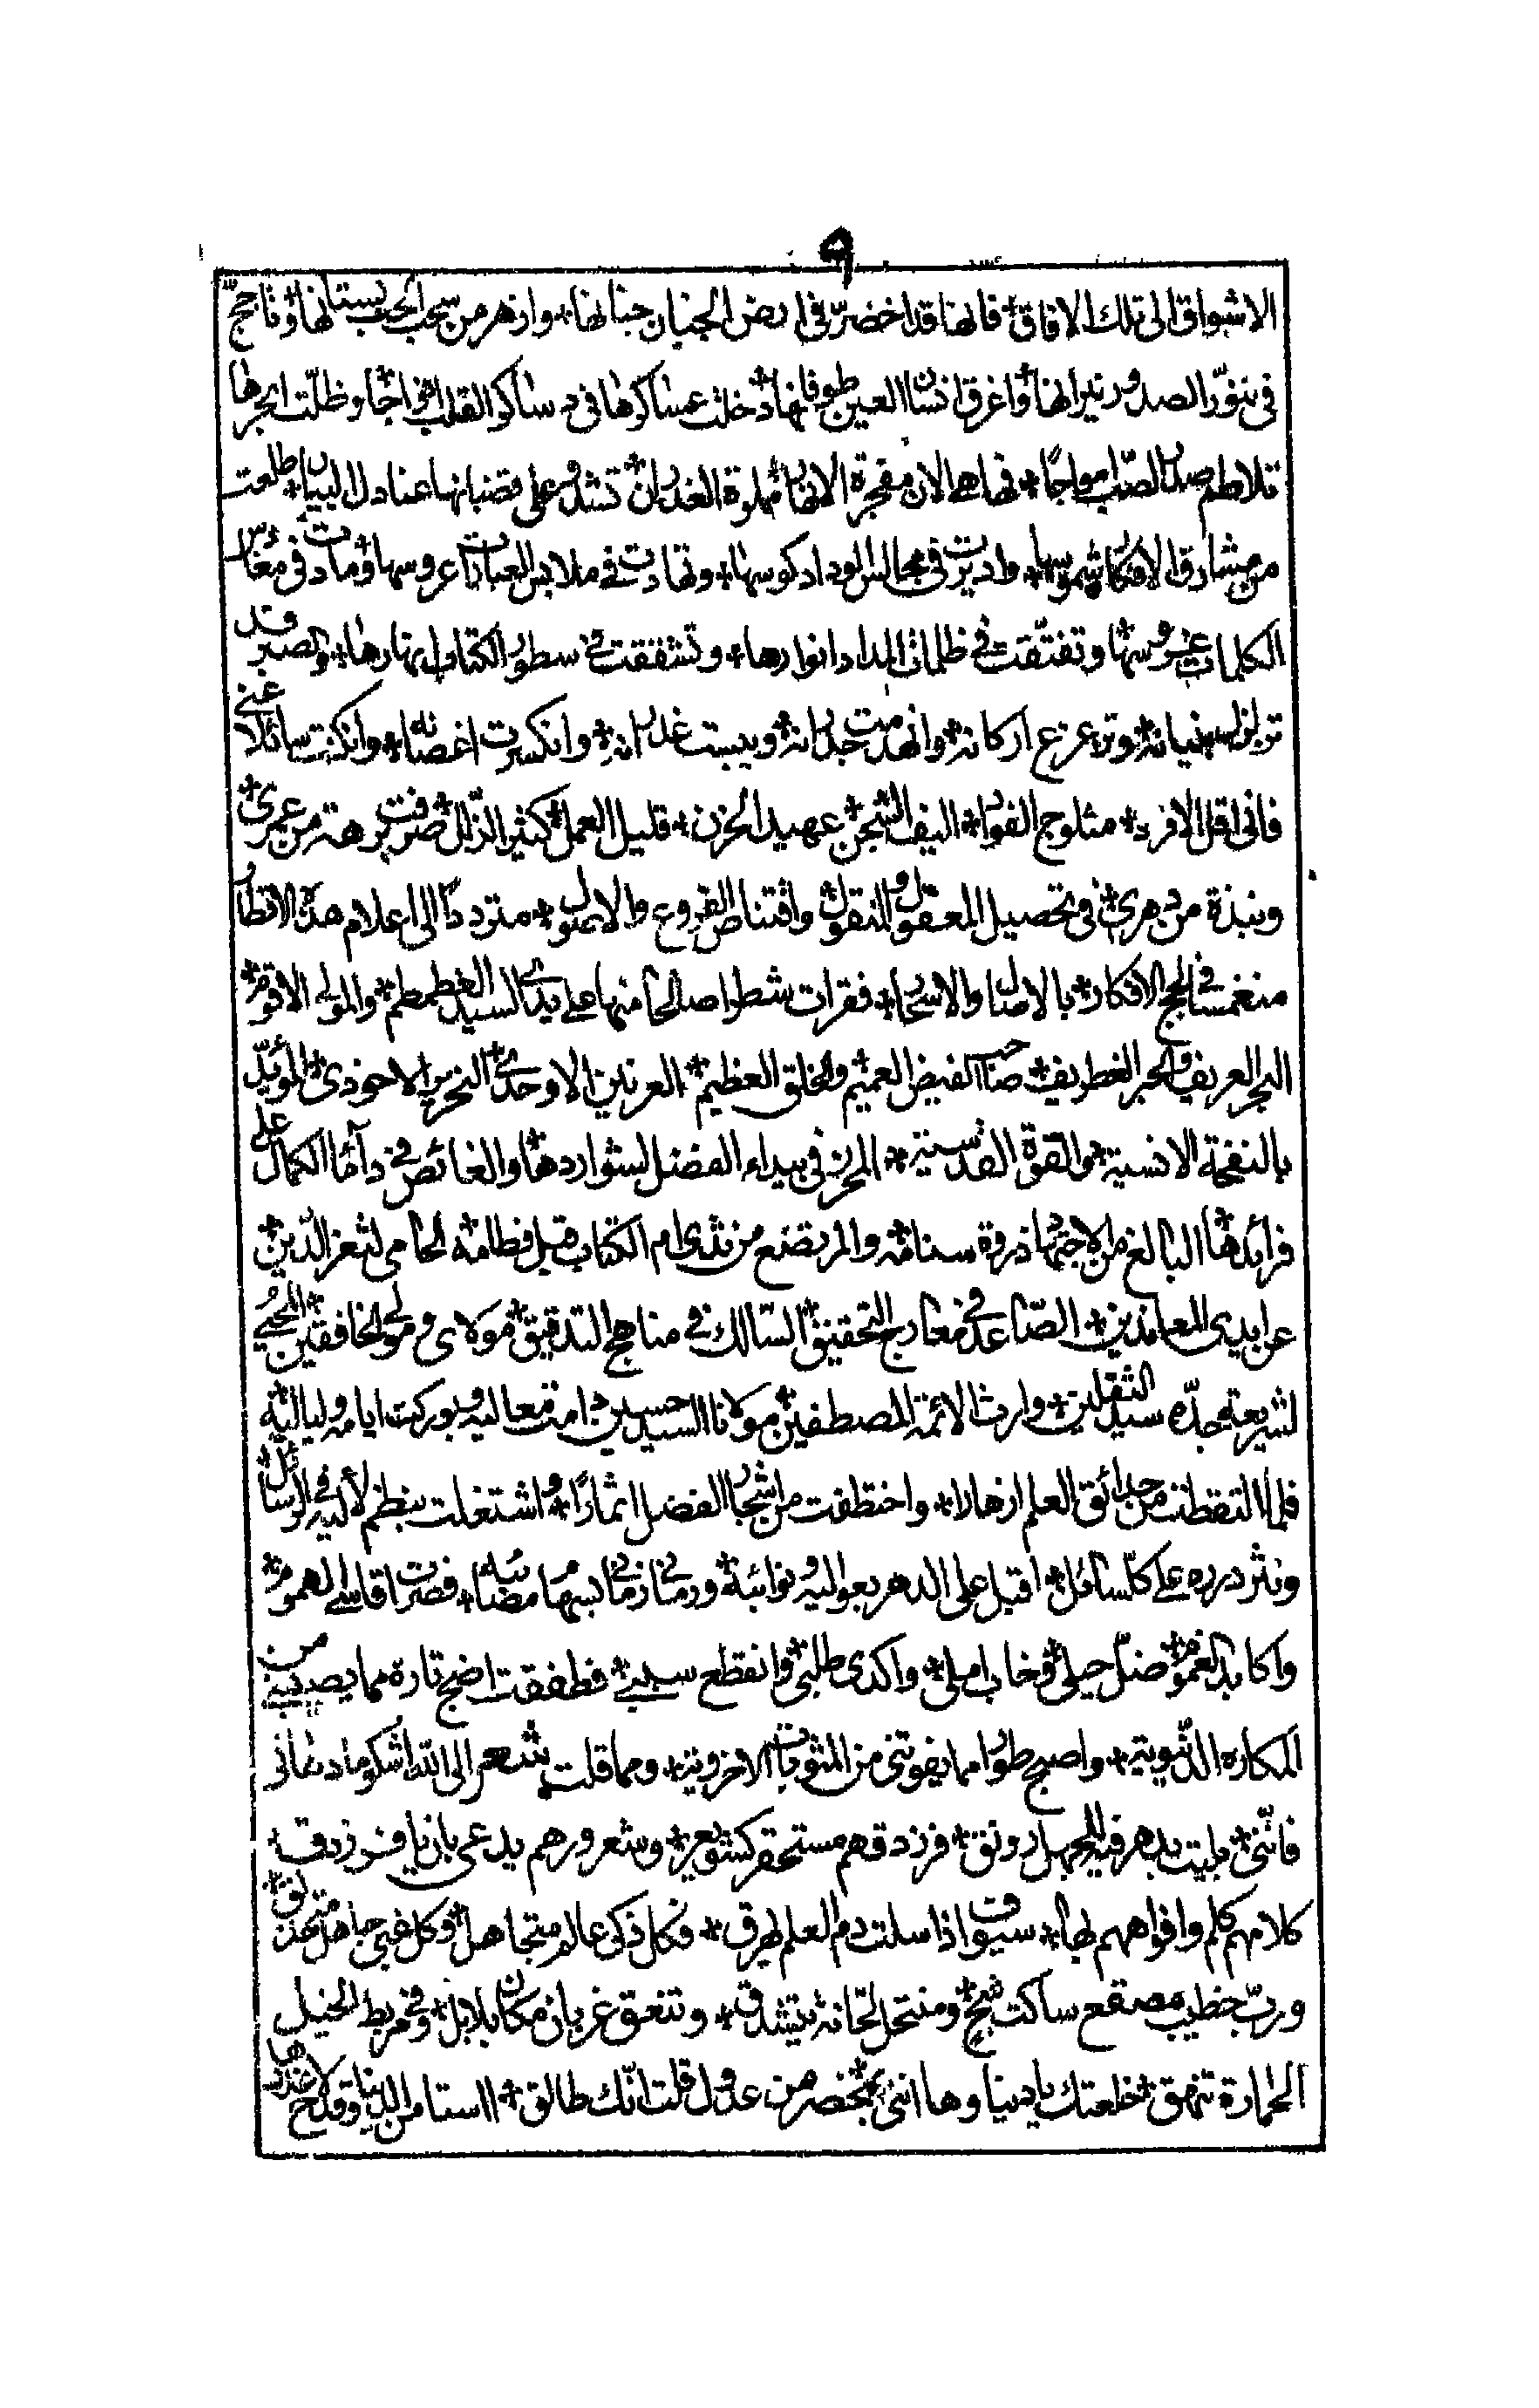 ٩
الاشواق الى تلك الافاق * فانها قد اخضرّ فى ارض الجنان جنانها * وازهر من سحب الحب بستانها * وتاجج
فى تنوّر الصدور نيرانها * واغرق انسان العين طوفانها * دخلت عساكرها فى دساكر القلب افواجًا * وظلّت ابحرها
تلاطم صدر الصّب امواجًا * فها هى الان مفجرة الانهار * مملوة الغدران * تشدو على قضبانها عنادل البيان * طلعت
من مشارق الافكار شموسها * واديرت فى مجالس الوداد كوسها * وتهادت فى ملابس العبارات عروسها * ومادت فى مغارس
الكلمات غروسها * وتفتّقت فى ظلمات المداد انوارها * وتشققت فى سطور الكتاب انهارها * والصبر قد
تزلزل بنيانه * وتزعزع اركانه * وانهدمت جدرانه * ويبست غدرانه * وانكسرت اغصانه * وان كنت سائلا عنى
فانى اقل الافراد * مثلوج الفواد * اليف الشجن * عهيد الحزن * قليل العمل * كثير الزلل * صرفت برهة من عمرى *
ونبذة من دهرى * فى تحصيل المعقول والمنقول * واقتناص الفروع والاصول * مترددًا الى اعلام هذه الاقطار
منغمسًا فى لجج الافكار * بالاصال والاسحار * فقرات شطرا صالحًا منها على يدى السيد الغطمطم * والمولى الاقوم *
البحر العريف والحبر الغطريف * صاحب الفيض العميم * والخلق العظيم * العرنين الاوحدى * النحرير الاحوذى * المؤيّد
بالنفحة الانسية * والقوة القدسية * المحرز فى بيداء الفضل لشواردها * والغائص فى دأماء الكمال على
فرائدها * البالغ من الاجتهاد ذروة سنامه * والمرتضع من ثدى ام الكتاب قبل فطامه * الحامى لثغر الدّين *
عن ايدى المعاندين * الصّاعد فى معارج التحقيق * السّالك فى مناهج التدقيق * مولاى ومولى الخافقين * المحيى
لشريعة جدّه سيد الثقلين * وارث الائمة المصطفين * مولانا السيد حسين دامت معاليه * وبوركت ايامه ولياليه *
فلما التقطت من حدائق العلم ازهارا * واختطفت من اشجار الفضل اثمارًا * واشتغلت بنظم لأليه فى الرسائل *
ونثر درره على كل سائل * اقبل على الدهر بعواليه ونوائبه * ورمانى زمانى بسهام مصائبه * فصرت اقاسى الهموم *
واكابد الغموم * ضلّ حيلى * وخاب املى * واكدى طلبى * وانقطع سببى * فطفقت اضج تارة مما يصيبنى من
المكاره الدنيوية * واصيح طورا مما يفوتنى من المثوبات الاخروية * ومما قلت شعر الى الله اشكو ما دهانى
فانّنى * بليت بدهر فيه للجهل رونق * فرزدقهم مستحقر كشويعر * وشعرورهم يدعى بان يا فرزدق *
كلامهم كلم وافواههم لها * سيوف اذا سلت دم العلم لهرق * فكل ذكى عالم متجاهل * وكل غبى جاهل متحذلق *
وربّ خطيب مصقع ساكت شج * ومنتحل لحّانة يتشدق * وتنعق غربان مكان بلابل * وفى مربط الخيل
الحمارة تنهق * خلعتك يا دنيا وها اننى * بمحضر من عدول قلت انّك طالق * اانستا من الدنيا وقد لاح غدرها